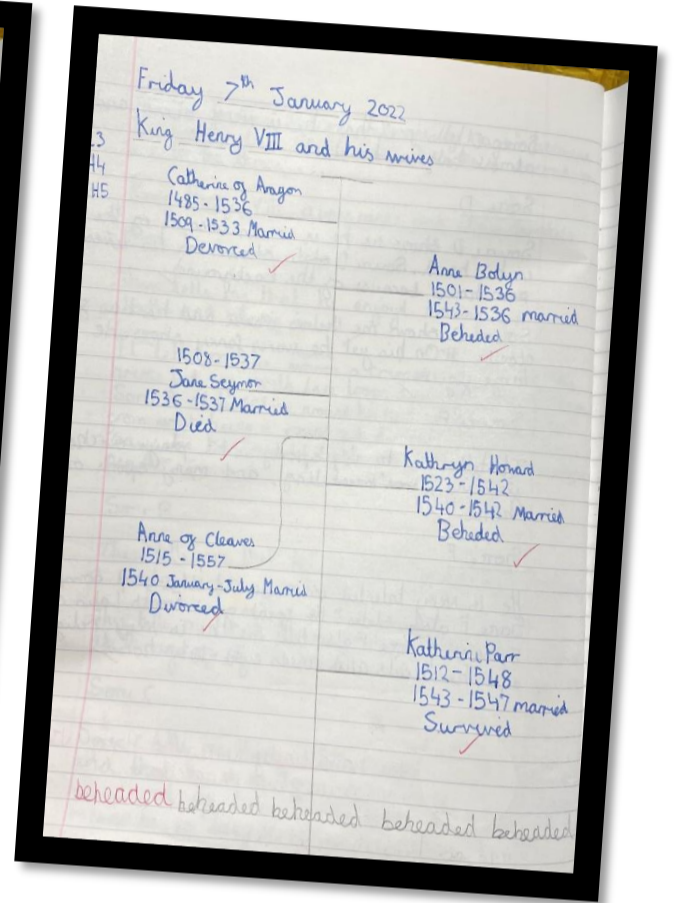 Friday 7th January 2022
King Henry VIII and his wives
.3
H4
H5
Catherine of Aragon
1485-1536
1509-1533 Married
Devorced
Anne Bolyn
1501-1536
1543-1536 married
Beheded
1508-1537
Jane Seymor
1536-1537 Married
Died
Kathryn Howard
1523-1542
1540-1542 Married
Beheded
Anne of Cleaves
1515-1557
1540 January-July Married
Divorced
Katherine Parr
1512-1548
1543-1547 married
Survived
beheaded beheaded beheaded beheaded beheaded